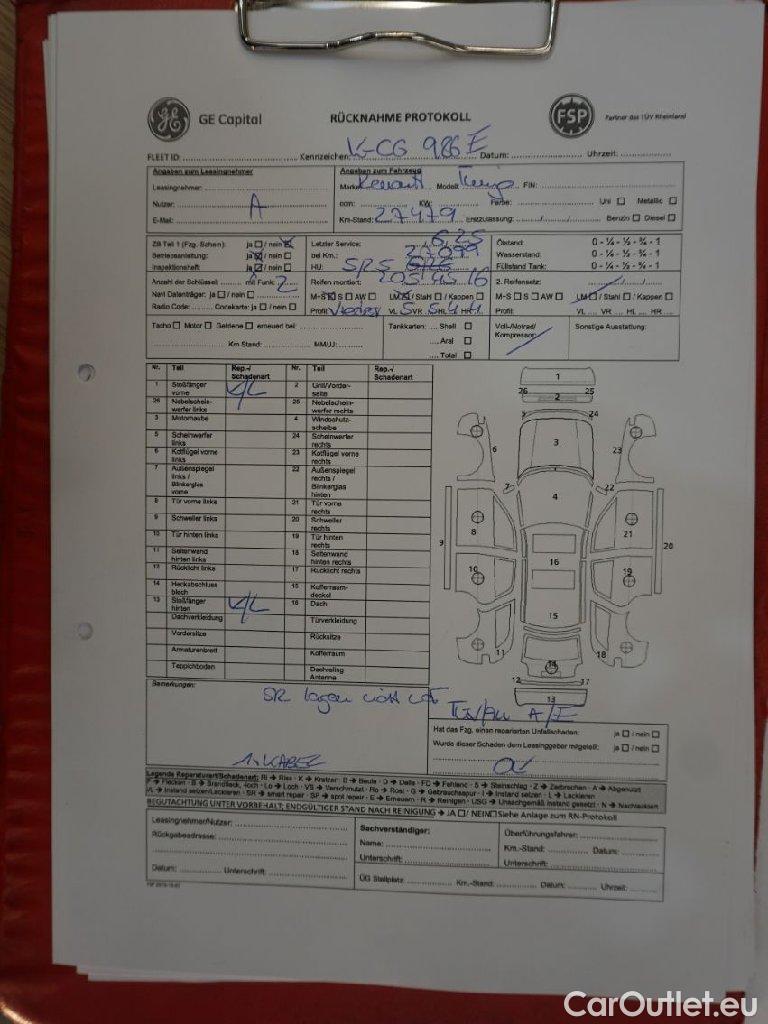 GE Capital RÜCKNAHME PROTOKOLL FSP Partner des TÜV Rheinland
FLEET ID: Kennzeichen: K-CG 986 E Datum: Uhrzeit:
Angaben zum Leasingnehmer
Leasingnehmer:
Nutzer: A
E-Mail:
Angaben zum Fahrzeug
Marke: Renault Modell: Twingo FIN:
ccm: KW: Farbe: Uni ☐ Metallic ☐
Km-Stand: 27479 Erstzulassung: Benzin ☐ Diesel ☐
ZB Teil 1 (Fzg. Schein): ja ☐ / nein ☒
Serviceanleitung: ja ☒ / nein ☐
Inspektionsheft: ja ☒ / nein ☐
Letzter Service: 6.25
bei Km.:
HU:
Ölstand: 0 - ¼ - ½ - ¾ - 1
Wasserstand: 0 - ¼ - ½ - ¾ - 1
Füllstand Tank: 0 - ¼ - ½ - ¾ - 1
Anzahl der Schlüssel: mit Funk: 2
Navi Datenträger: ja ☐ / nein ☐
Radio Code: Codekarte: ja ☐ / nein ☐
Reifen montiert: 205 45 16
M-S ☒ S ☐ AW ☐ LM ☒ / Stahl ☐ / Kappen ☐
Profil: VL 5 VR 5 HL 4 HR 4
2. Reifensatz:
M-S ☐ S ☐ AW ☐ LM ☐ / Stahl ☐ / Kappen ☐
Profil: VL VR HL HR
Tacho ☐ Motor ☐ Getriebe ☐ erneuert bei:
Km Stand: MM/JJ:
Tankkarten: Shell ☐
Aral ☐
Total ☐
Voll-/Notrad/
Kompressor:
Sonstige Ausstattung:
Nr. Teil Rep.-/ Schadenart Nr. Teil Rep.-/ Schadenart
1 Stoßfänger vorne K/L 2 Grill/Vorderseite
26 Nebelscheinwerfer links 25 Nebelscheinwerfer rechts
3 Motorhaube 4 Windschutzscheibe
5 Scheinwerfer links 24 Scheinwerfer rechts
6 Kotflügel vorne links 23 Kotflügel vorne rechts
7 Außenspiegel links / Blinkerglas vorne 22 Außenspiegel rechts / Blinkerglas hinten
8 Tür vorne links 21 Tür vorne rechts
9 Schweller links 20 Schweller rechts
10 Tür hinten links 19 Tür hinten rechts
11 Seitenwand hinten links 18 Seitenwand hinten rechts
12 Rücklicht links 17 Rücklicht rechts
14 Heckabschlussblech 15 Kofferraumdeckel
13 Stoßfänger hinten K/L 16 Dach
Dachverkleidung Türverkleidung
Vordersitze Rücksitze
Armaturenbrett Kofferraum
Teppichboden Dachreling Antenne
1
26 25
2
5 24
3
6 23
7 22
4
8 21
9 20
16
10 19
15
11 18
14
12 17
13
Bemerkungen:
SR lagen nicht vor
1. KABEL
A/E
Hat das Fzg. einen reparierten Unfallschaden: ja ☐ / nein ☐
Wurde dieser Schaden dem Leasinggeber mitgeteilt: ja ☐ / nein ☐
Legende Reparaturart/Schadenart: Ri → Riss · K → Kratzer · B → Beule · D → Delle · FC → Fehlend · S → Steinschlag · Z → Zerbrochen · A → Abgenutzt
F → Flecken · B → Brandfleck, -loch · Lo → Loch · VS → Verschmutzt · Ro → Rost · G → Gebrauchsspur · I → Instand setzen · L → Lackieren
I/L → Instand setzen/Lackieren · SR → smart repair · SP → spot repair · E → Erneuern · R → Reinigen · USG → Unsachgemäß instand gesetzt · N → Nachlacken
BEGUTACHTUNG UNTER VORBEHALT; ENDGÜLTIGER STAND NACH REINIGUNG → JA ☐ / NEIN ☐ Siehe Anlage zum RN-Protokoll
Leasingnehmer/Nutzer:
Rückgabeadresse:
Datum: Unterschrift:
Sachverständiger:
Name:
Unterschrift:
Überführungsfahrer:
Km.-Stand: Datum:
Unterschrift:
ÜG Stellplatz: Km.-Stand: Datum: Uhrzeit:
CarOutlet.eu